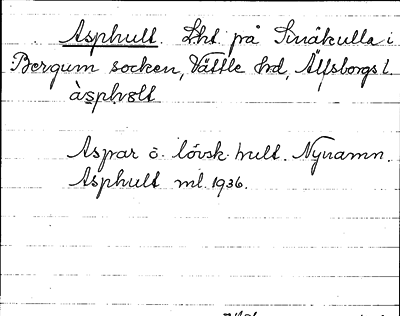 Asphult. Lht. på Småkulla i
Bergum socken, Vättle hd, Älfsborgs l.
àsphɵlt
Aspar o. lövsk. hult. Nynamn.
Asphult ml. 1936.